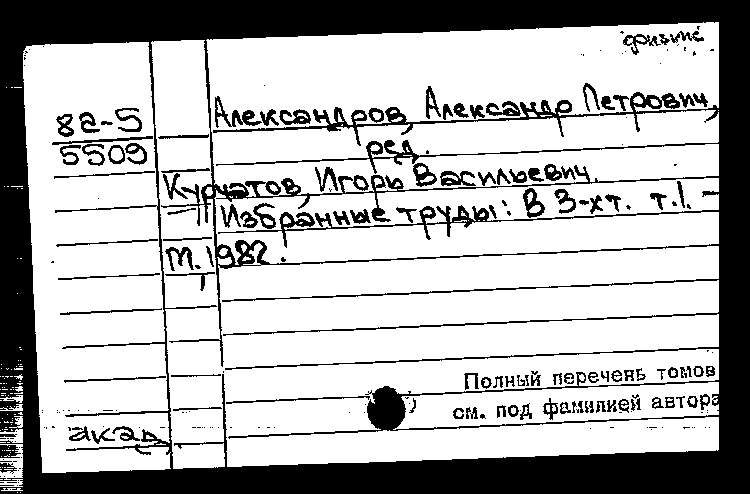 физике
82-5
5509
Александров, Александр Петрович,
ред.
Курчатов, Игорь Васильевич.
Избранные труды: В 3-хт. т.1. –
М., 1982.
Полный перечень томов
см. под фамилией автора
акад.